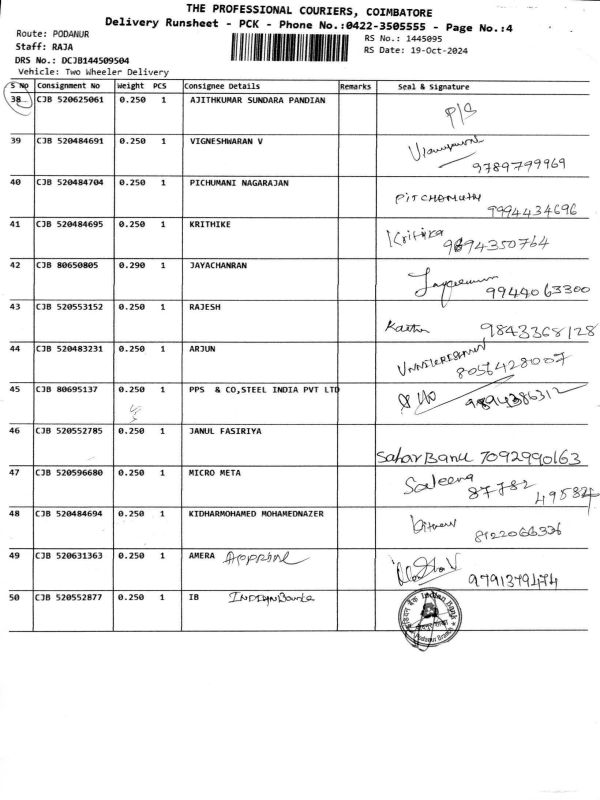 THE PROFESSIONAL COURIERS, COIMBATORE
Delivery Runsheet - PCK - Phone No.:0422-3505555 - Page No.:4
Route: PODANUR RS No.: 1445095
Staff: RAJA RS Date: 19-Oct-2024
DRS No.: DCJB144509504
Vehicle: Two Wheeler Delivery
S No Consignment No Weight PCS Consignee Details Remarks Seal & Signature
38 CJB 520625061 0.250 1 AJITHKUMAR SUNDARA PANDIAN P/S
39 CJB 520484691 0.250 1 VIGNESHWARAN V
9789799969
40 CJB 520484704 0.250 1 PICHUMANI NAGARAJAN PITCHAMUTHU
9994434696
41 CJB 520484695 0.250 1 KRITHIKE Kritika
9894350764
42 CJB 80650805 0.290 1 JAYACHANRAN
9944063300
43 CJB 520553152 0.250 1 RAJESH
9843368128
44 CJB 520483231 0.250 1 ARJUN UNNIKRISHNAN
8056428007
45 CJB 80695137 0.250 1 PPS & CO,STEEL INDIA PVT LTD
9894386312
46 CJB 520552785 0.250 1 JANUL FASIRIYA
Sahar Banu 7092990163
47 CJB 520596680 0.250 1 MICRO META Saleena
87782
48 CJB 520484694 0.250 1 KIDHARMOHAMED MOHAMEDNAZER
8122066336
49 CJB 520631363 0.250 1 AMERA
9791379474
50 CJB 520552877 0.250 1 IB Indian Bank
Indian Bank
Podanur Branch